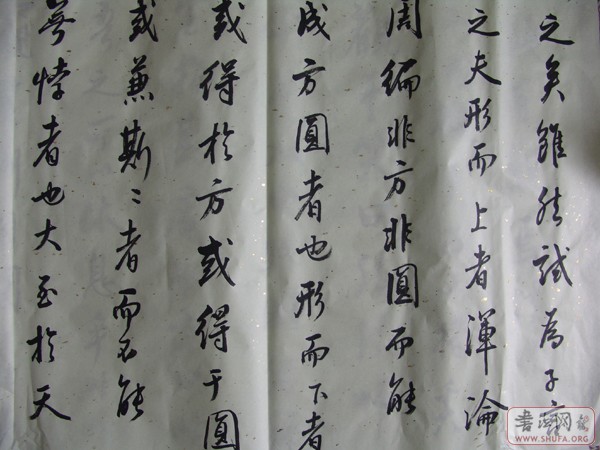 之矣雖然試為子言
之夫形而上者渾淪
周徧非方非圓而能
成方圓者也形而下者
或得於方或得于圓
或兼斯〻者而不能
無悖者也大至於天
書法网
WWW.SHUFA.ORG